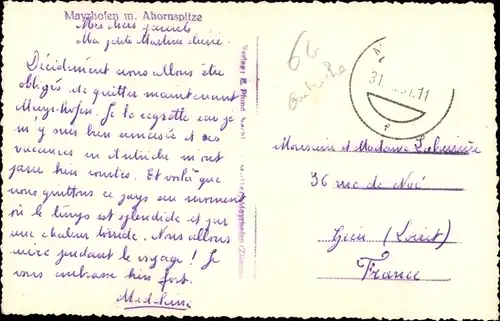 Mayrhofen m. Ahornspitze
Mes chers parents
Ma petite Martine chérie.
Décidément nous allons être
obligés de quitter maintenant
Mayrhofen. Je le regrette car je
m'y suis bien amusée et ces
vacances en Autriche m'ont
paru bien courtes. Et voilà que
nous quittons ce pays au moment
où le temps est splendide et par
une chaleur torride. Nous allons
cuire pendant le voyage ! Je
vous embrasse bien fort.
Verlag: Mayrhofen
66
31. 11
Monsieur et Madame
36 rue de Noé
Gien (Loiret)
France